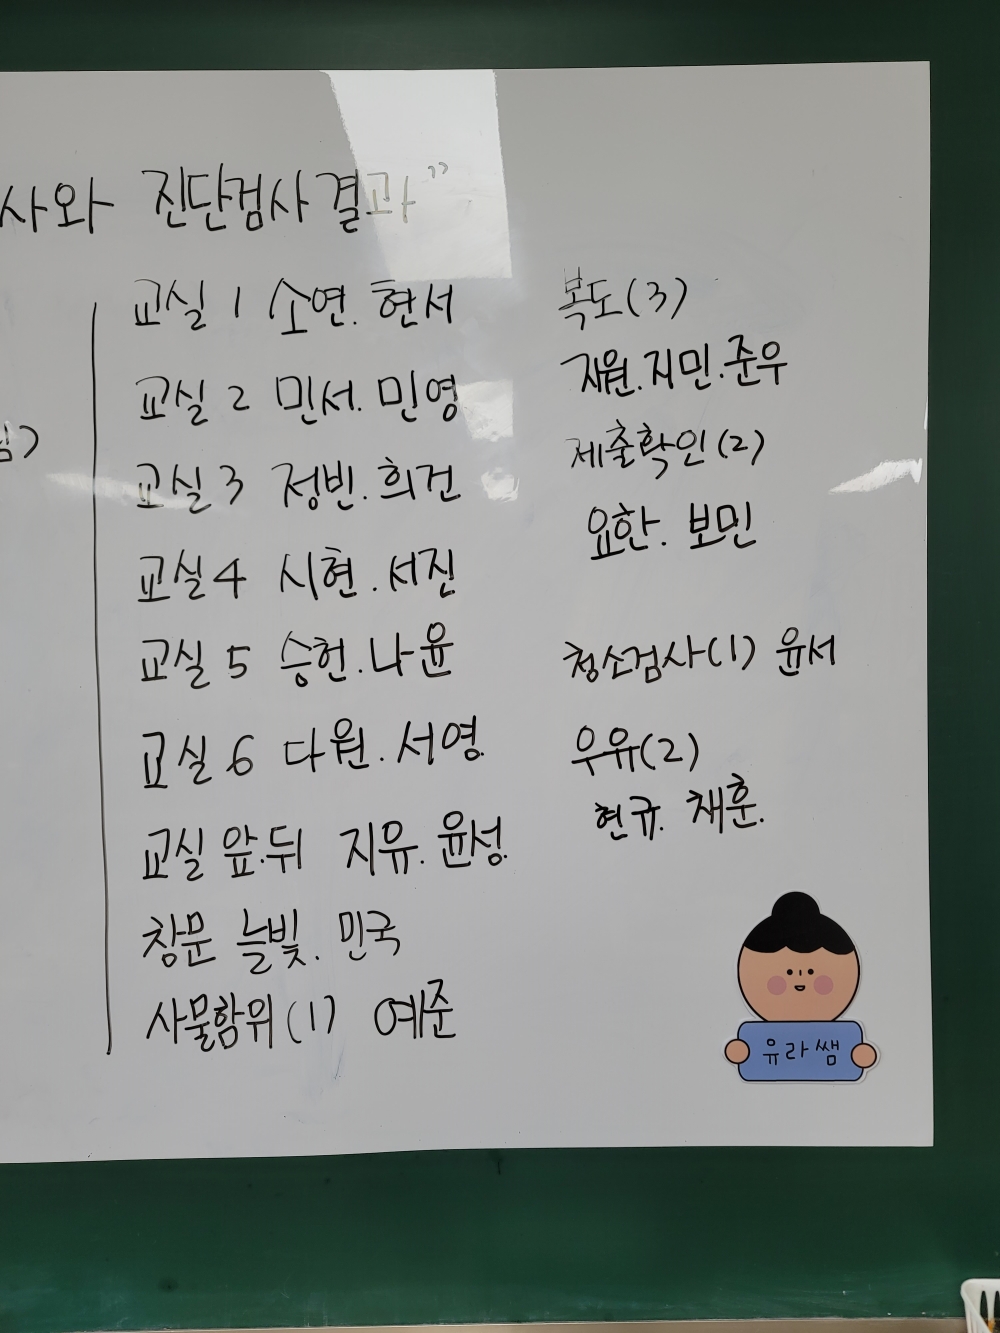 사와 진단검사결과"
교실 1 소연. 현서
교실 2 민서. 민영
교실 3 정빈. 희건
교실 4 시현. 서진
교실 5 승헌. 나윤
교실 6 다원. 서영
교실 앞.뒤 지유. 윤성
창문 늘빛. 민국
사물함위(1) 예준
복도(3)
지원.지민.준우
제출확인(2)
요한. 보민
청소검사(1) 윤서
우유(2)
현규. 채훈.
유라쌤